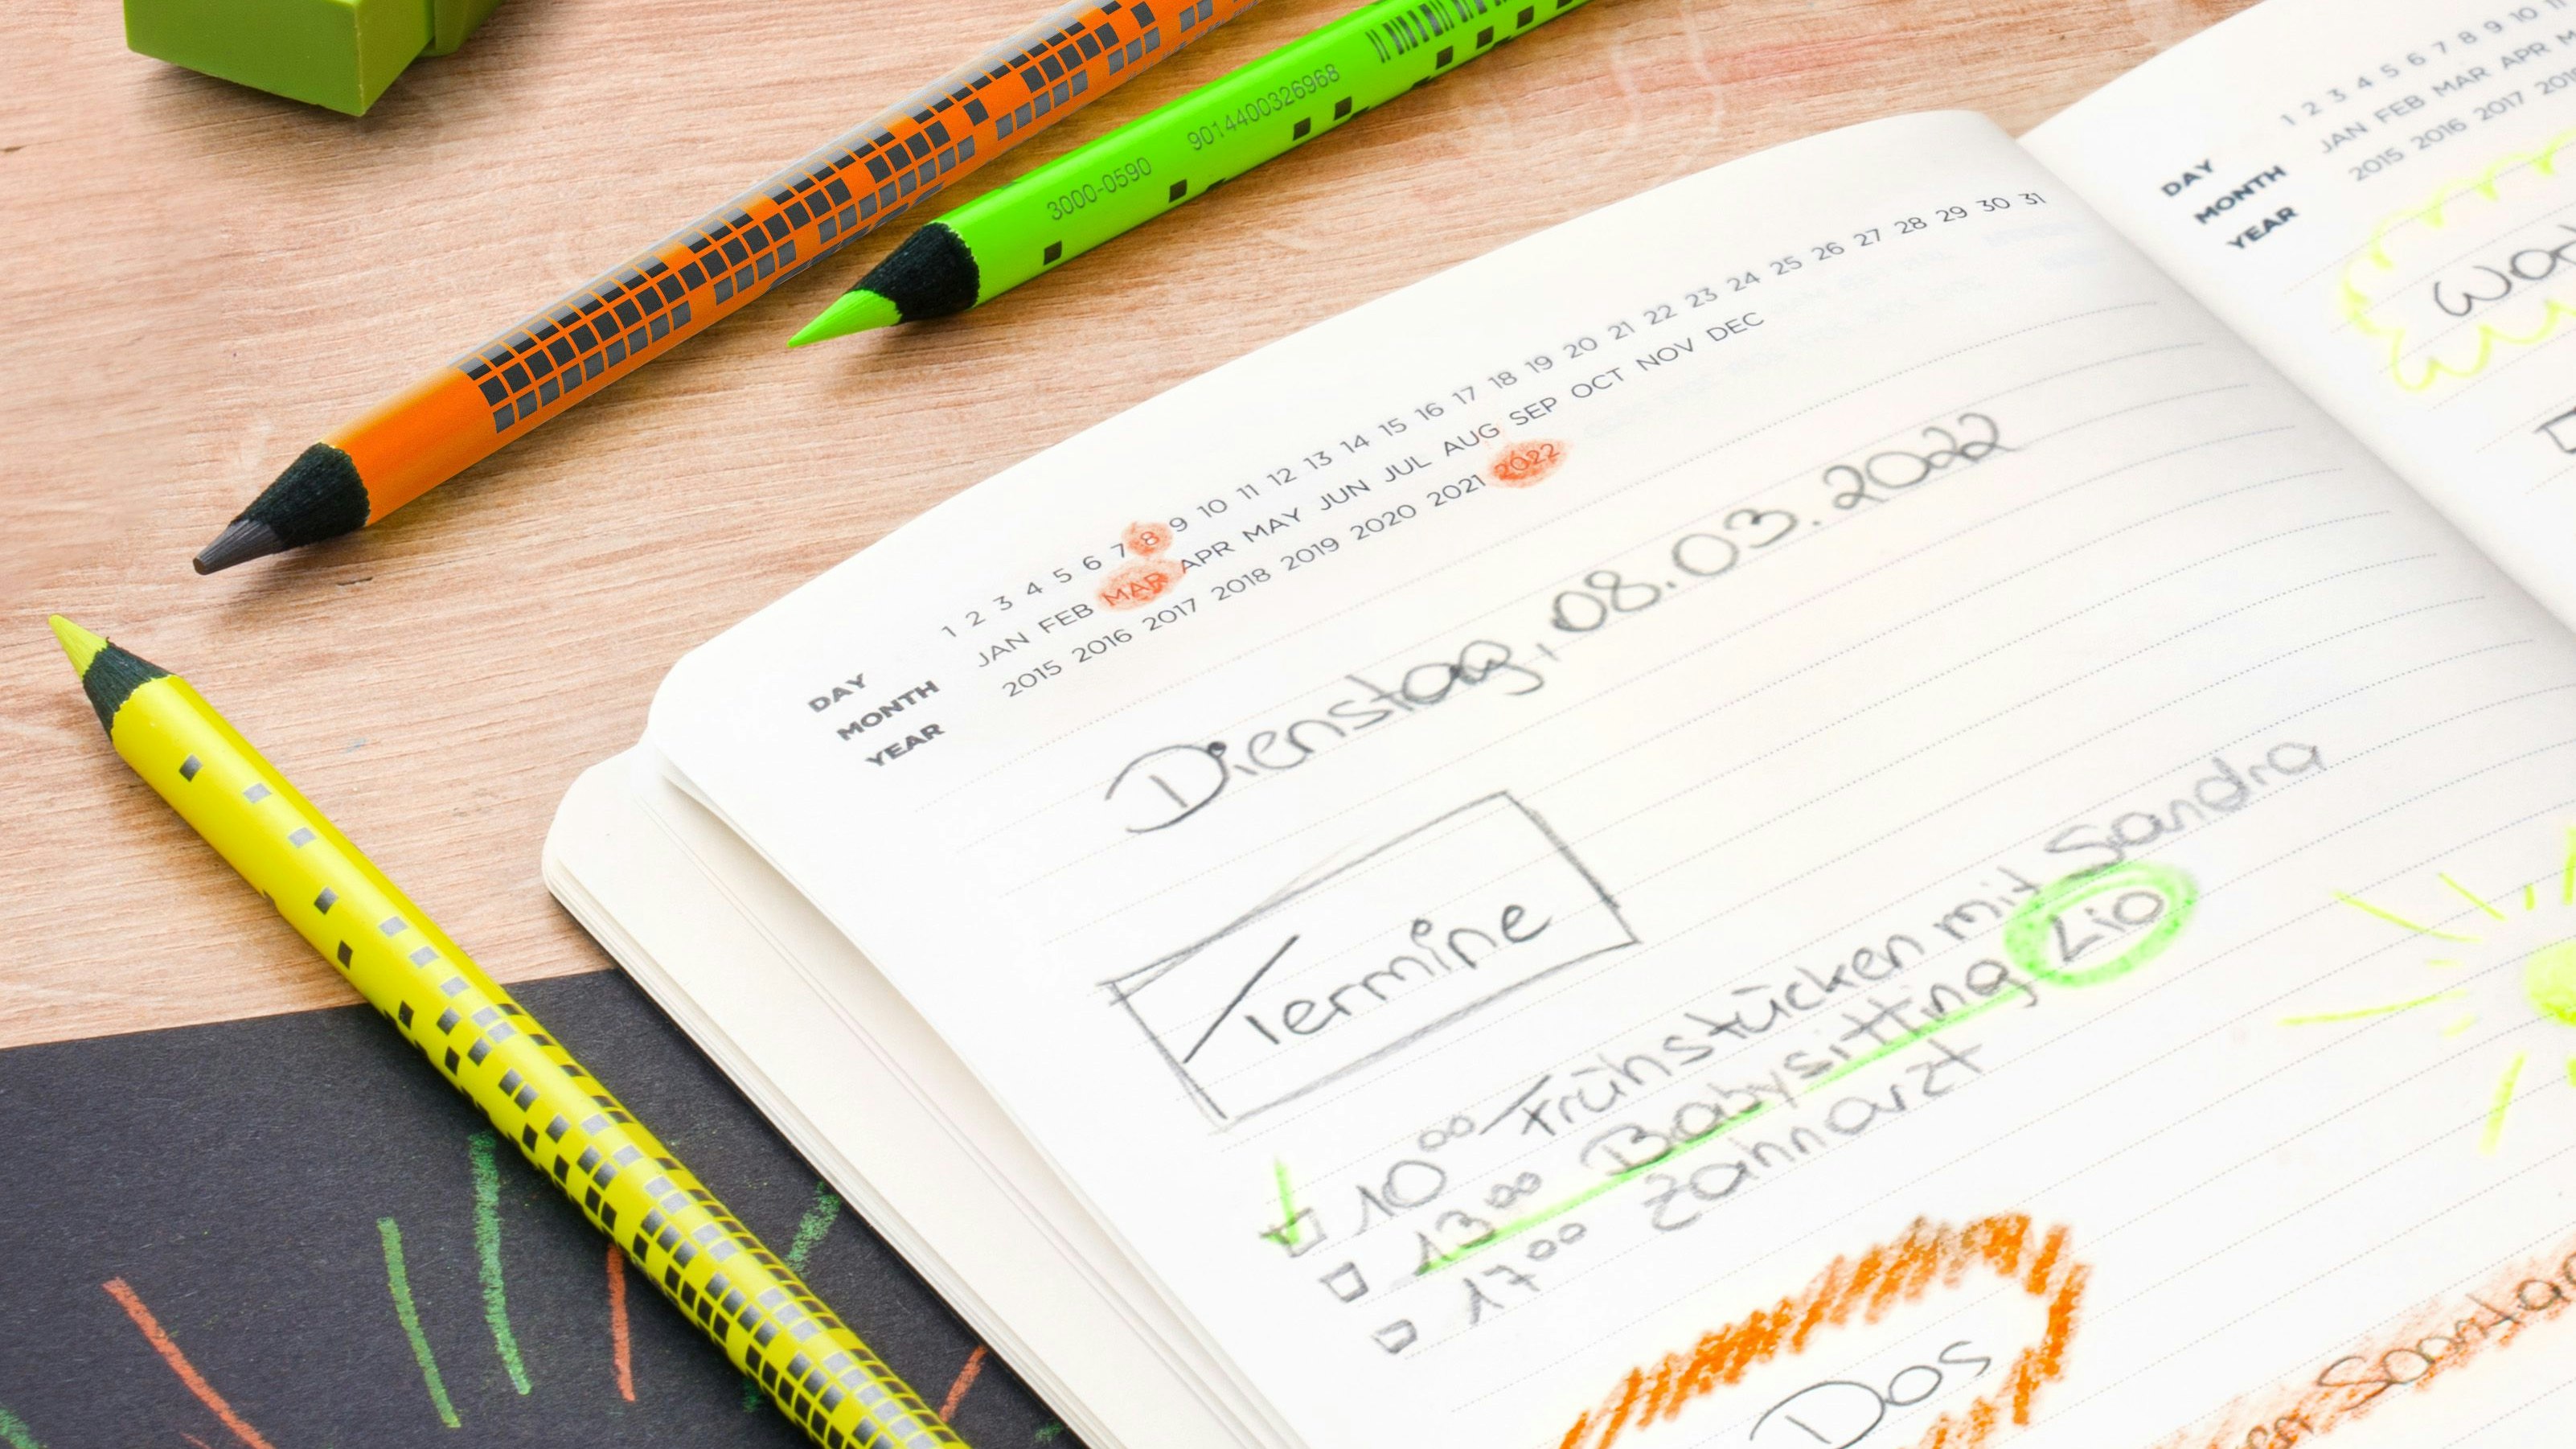 3000-0590 9014400326968
DAY 1 2 3 4 5 6 7 8 9 10 11 12 13 14 15 16 17 18 19 20 21 22 23 24 25 26 27 28 29 30 31
MONTH JAN FEB MAR APR MAY JUN JUL AUG SEP OCT NOV DEC
YEAR 2015 2016 2017 2018 2019 2020 2021 2022
Dienstag, 08.03.2022
Termine
10⁰⁰ Frühstücken mit Sandra
13⁰⁰ Babysitting Lio
17⁰⁰ Zahnarzt
Dos
DAY 1 2 3 4 5 6 7 8 9 10 11
MONTH JAN FEB MAR APR
YEAR 2015 2016 2017